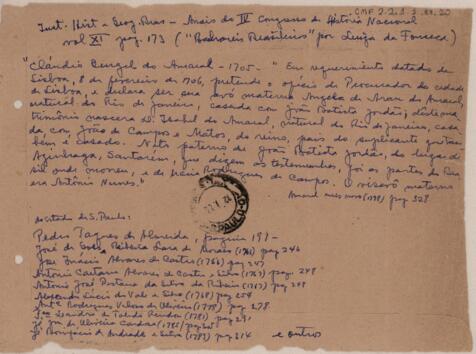 CMF 2.2.3.3.88.20
Inst. Hist. e Geog. Bras. - Anais do IV Congresso de História Nacional
vol XI pag. 173 ("Bacharéis Brasileiros" por Luiza da Fonseca)
"Cláudio Gurgel do Amaral - 1705 - " Em requerimento datado de
Lisboa, 8 de fevereiro de 1706, pretende o ofício de Procurador da cidade
de Lisboa, e declara ser sua avó materna Angela de Amaral,
natural do Rio de Janeiro, casada com João Batista Jordão, deste ma-
trimônio nascera D. Isabel do Amaral, natural do Rio de Janeiro, casa-
da com João de Campos e Matos, do reino, pais do suplicante
bem é casado. Neto paterno de João Batista Jordão, do lugar de
Azinhaga, Santarém, que digem as testemunhas, foi as partes do Bra-
sil onde morreu, e de Rodrigues de Campos. O visavô materno
era Antônio Nunes."
pag 328
do estado de S. Paulo:
Pedro Taques de Almeida, pagina 191 -
José de Ribeiro Lara de Morais (1761) pag 246
José Inácio Alvares de Castro (1766) pag 247
Antonio Caetano Alvares de Castro e Silva (1767) pag. 248
Antonio José da Silva da (1767) pag 248
do Val e Silva (1768) pag 254
Antº Rodrigues de Oliveira (1778) pag 278
Leandro de Toledo Rendon (1781) pag 291
de Oliveira Cardoso (1785) pag
José Bonifacio de Andrada e Silva (1789) pag 314
e outros